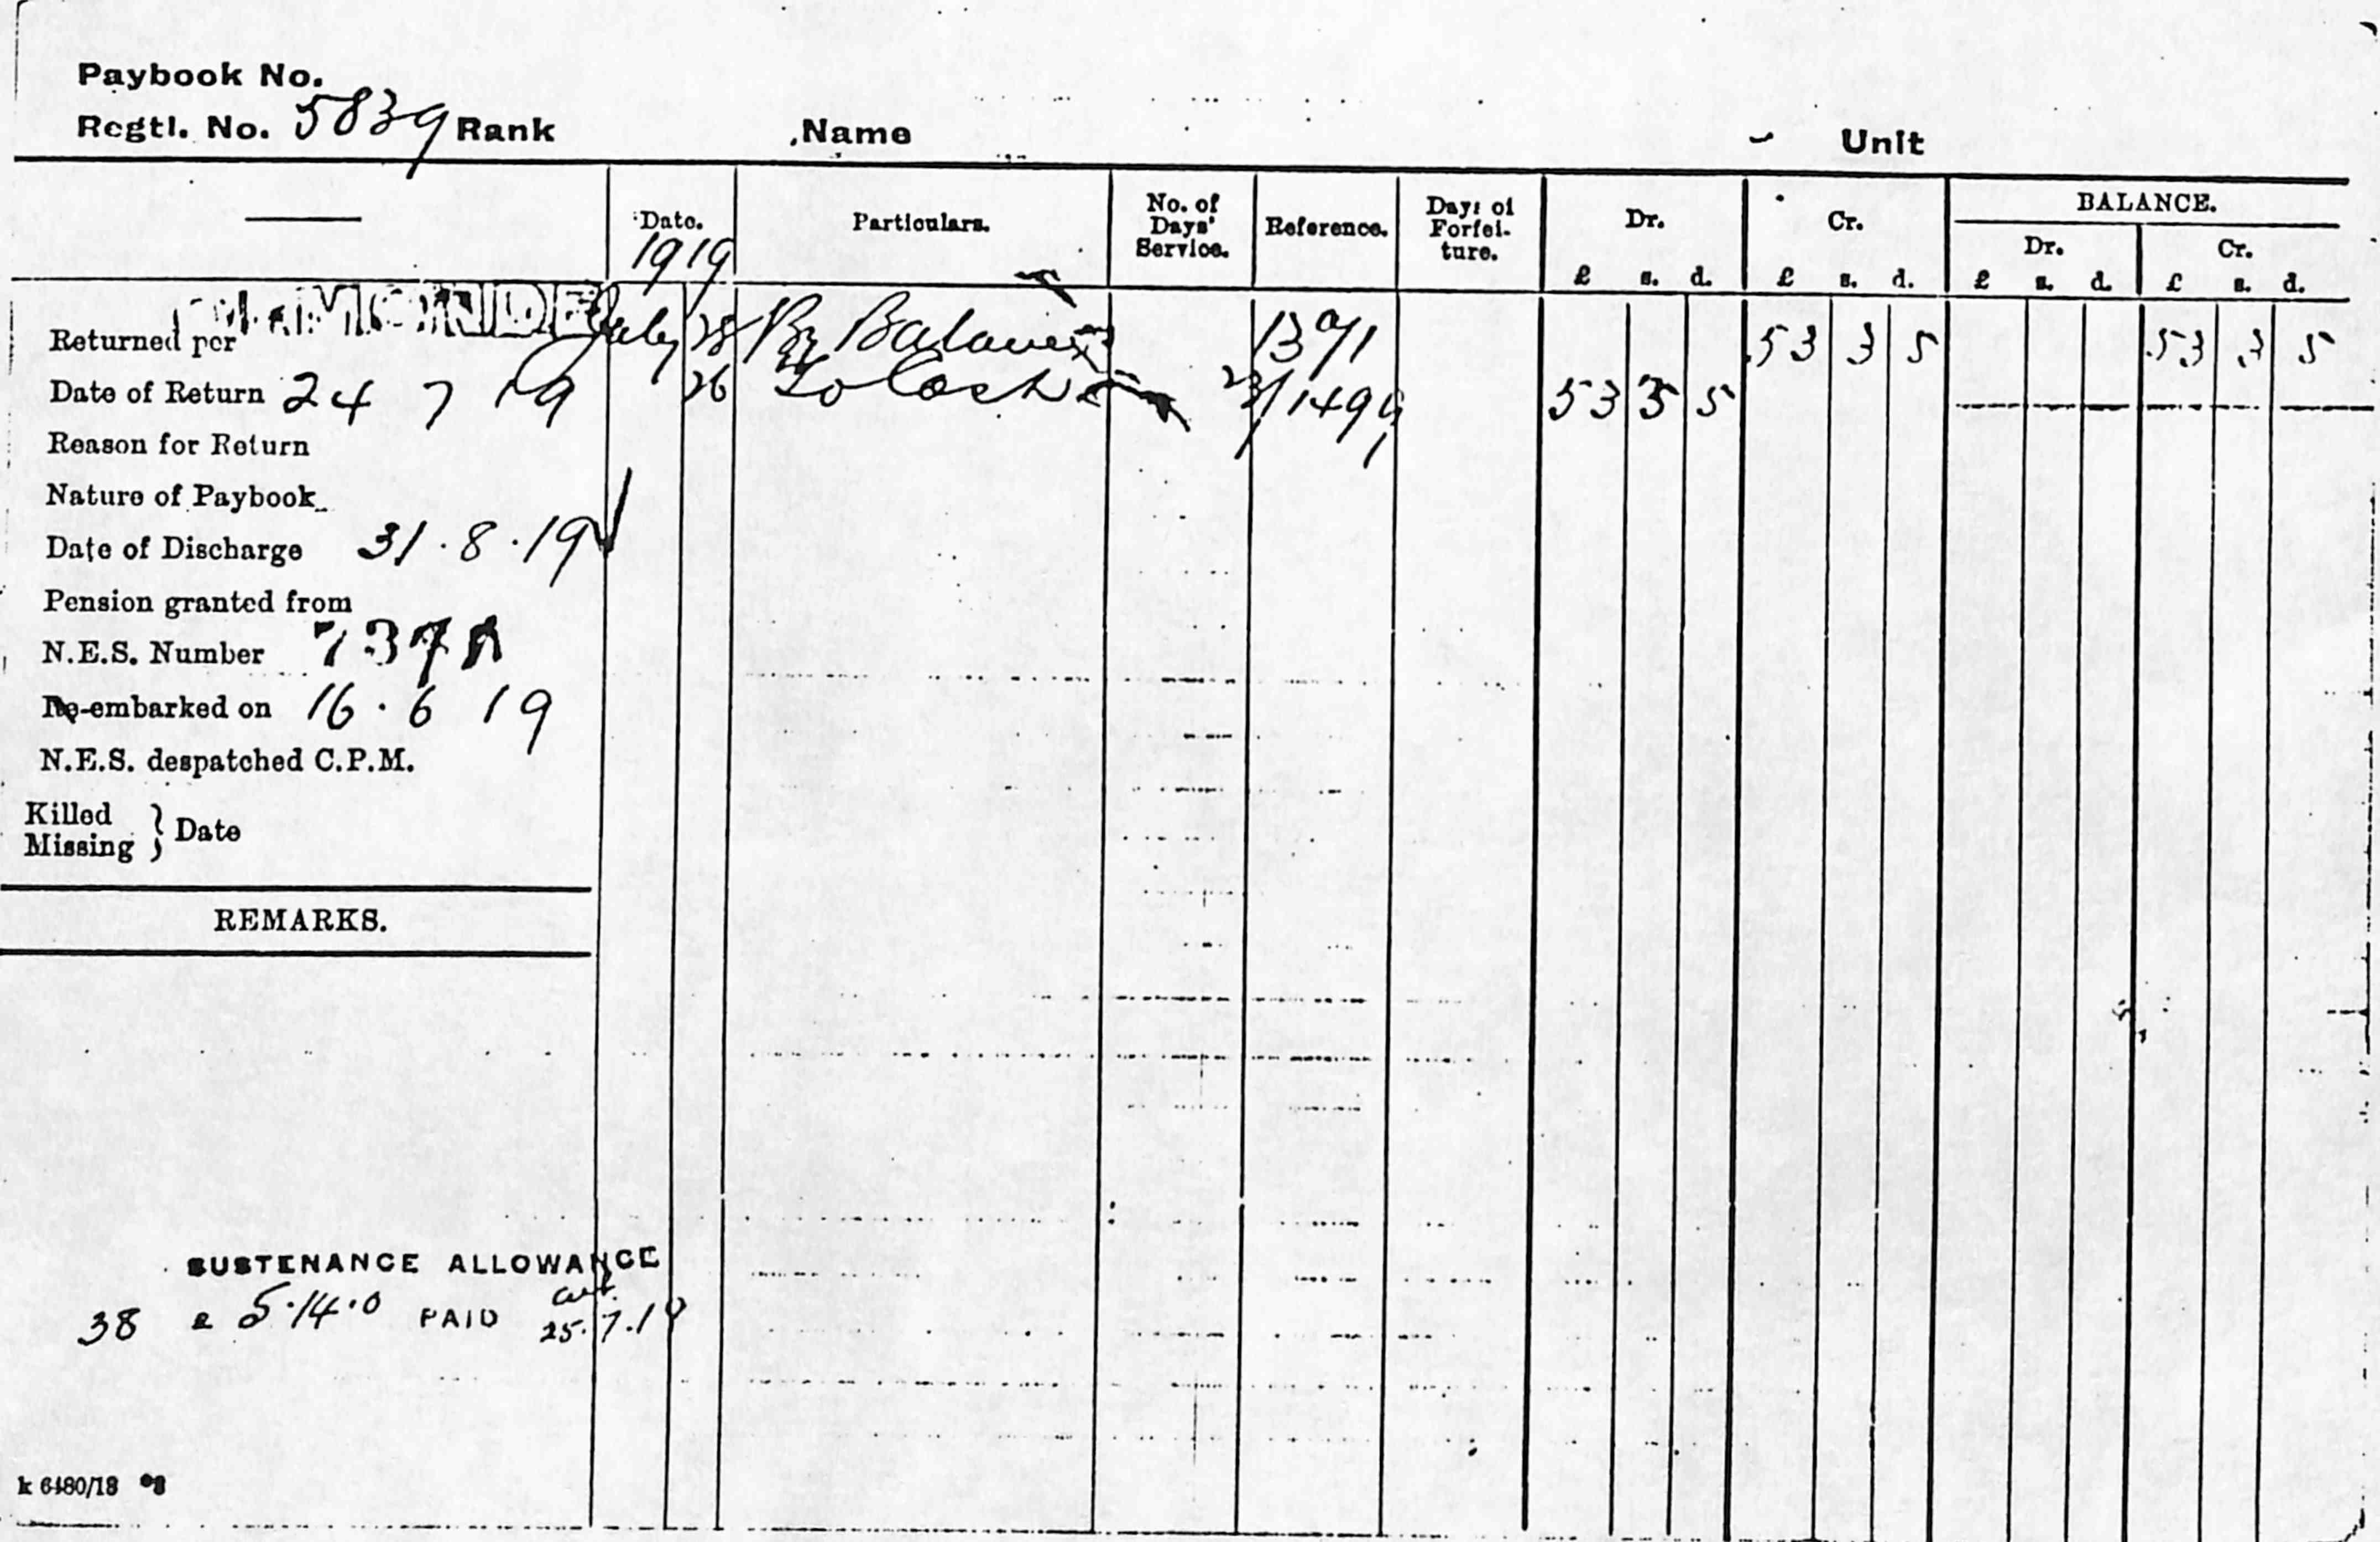 Paybook No.
Regtl. No. 5839 Rank Name Unit
Date. Particulars. No. of Days' Service. Reference. Days of Forfeiture. Dr. Cr. BALANCE.
Dr. Cr.
1919
£ s. d. £ s. d. £ s. d. £ s. d.
Returned per July 28 By Balance 1391 53 3 5 53 3 5
Date of Return 24 7 19 26 To Cash 1499 53 3 5
Reason for Return
Nature of Paybook
Date of Discharge 31.8.19
Pension granted from
N.E.S. Number 737
Re-embarked on 16.6 19
N.E.S. despatched C.P.M.
Killed
Missing } Date
REMARKS.
SUSTENANCE ALLOWANCE
38 £ 5.14.0 PAID 25.7.19
k 6480/18